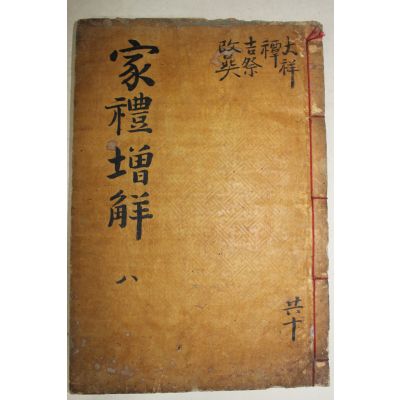 大祥
禫
吉祭
改葬
家禮增解
八
共十